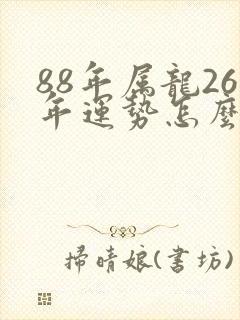 88年属龍26
年運势怎麽
掃晴娘(書坊)